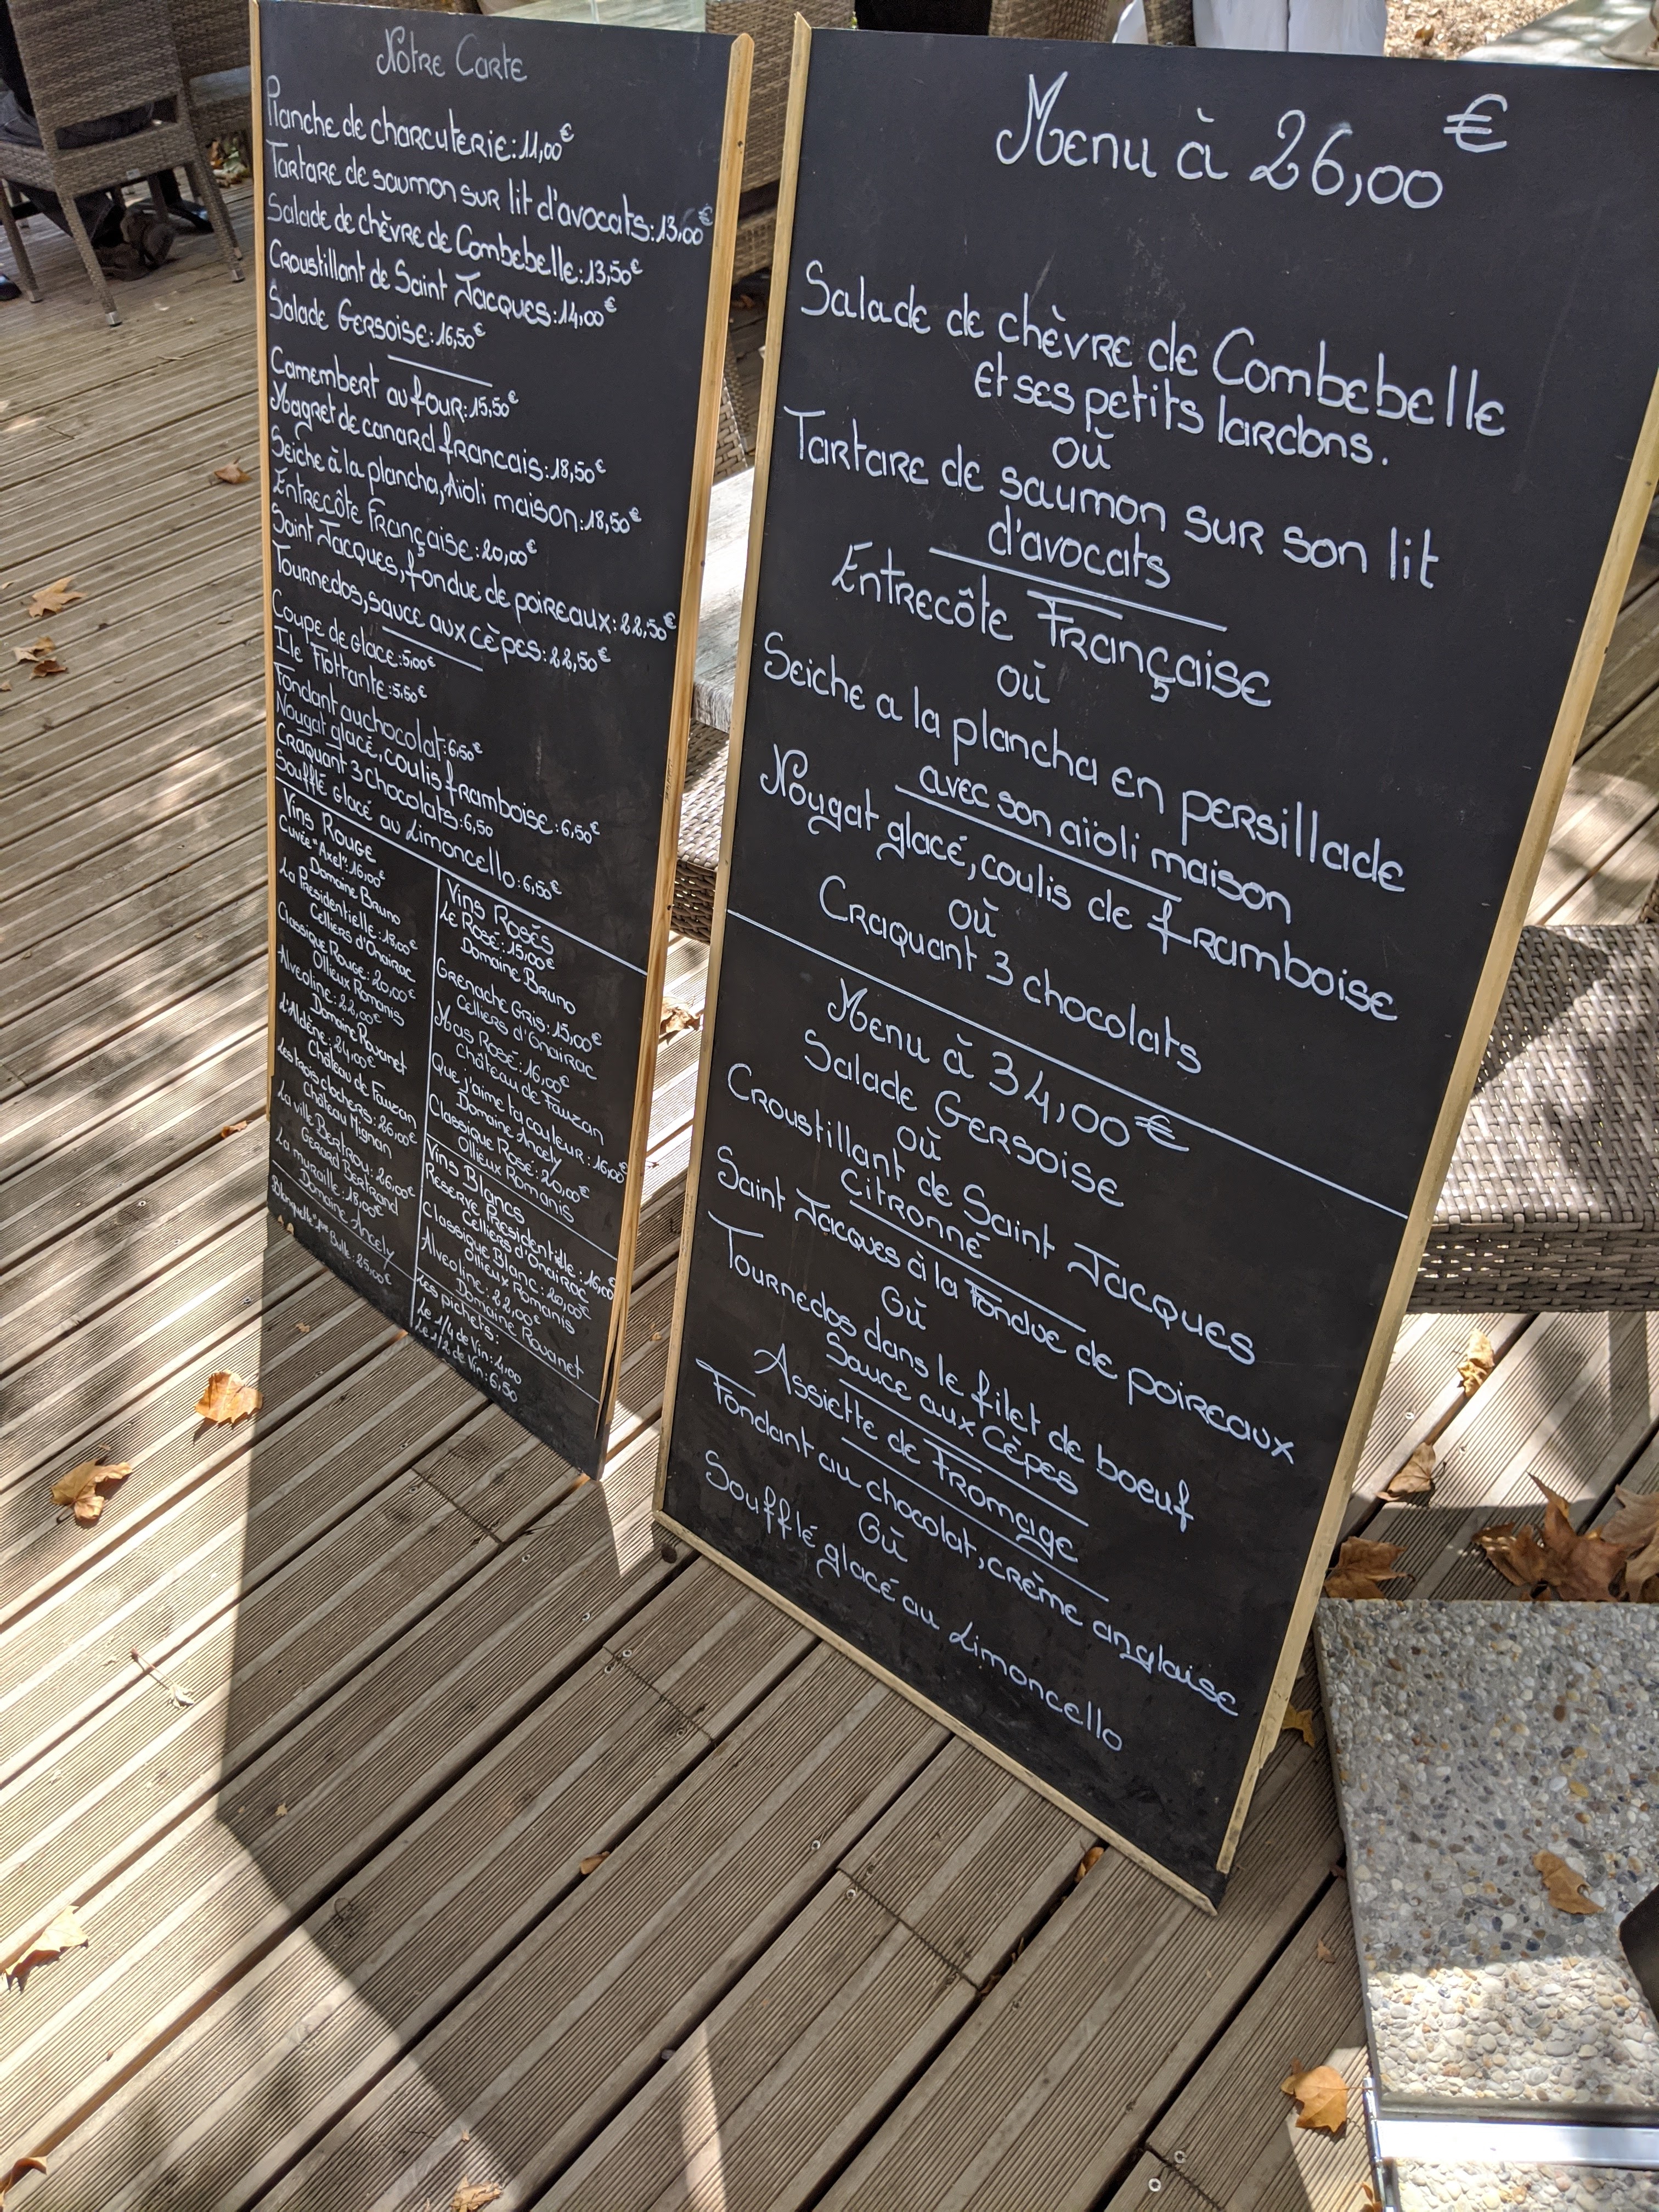 Notre Carte
Planche de charcuterie: 11,00€
Tartare de saumon sur lit d'avocats: 13,00€
Salade de chèvre de Combebelle: 13,50€
Croustillant de Saint Jacques: 14,00€
Salade Gersoise: 16,50€
Camembert au four: 15,50€
Magret de canard francais: 18,50€
Seiche à la plancha, Aioli maison: 18,50€
Entrecôte Française: 20,00€
Saint Jacques, fondue de poireaux: 22,50€
Tournedos, sauce aux Cèpes: 22,50€
Coupe de glace: 5,00€
Ile Flottante: 5,50€
Fondant au chocolat: 6,50€
Nougat glacé, coulis framboise: 6,50€
Craquant 3 chocolats: 6,50
Soufflé glacé au Limoncello: 6,50€
Vins Rouge
Cuvée "Axel": 16,00€
Domaine Bruno
La Présidentielle: 18,00€
Celliers d'Onairac
Classique Rouge: 20,00€
Ollieux Romanis
Alveoline: 22,00€
Domaine Rouanet
d'Aldène: 24,00€
Château de Fauzan
Les trois clochers: 26,00€
Château Mignan
La ville Bertrou: 26,00€
Gerard Bertrand
La muraille: 18,00€
Domaine Ancely
Bulle: 25,00€
Vins Rosés
Le Rosé: 15,00€
Domaine Bruno
Grenache Gris: 15,00€
Celliers d'Onairac
Mas Rosé: 16,00€
Château de Fauzan
Que j'aime ta couleur: 16,00€
Domaine Ancely
Classique Rosé: 20,00€
Ollieux Romanis
Vins Blancs
Reserve Présidentielle: 16,00
Celliers d'Onairac
Classique Blanc: 20,00€
Ollieux Romanis
Alveoline: 22,00€
Domaine Rouanet
Les pichets:
Le 1/4 de Vin: 4,00
Le 1/2 de Vin: 6,50
Menu à 26,00€
Salade de chèvre de Combebelle
et ses petits lardons.
où
Tartare de saumon sur son lit
d'avocats
Entrecôte Française
où
Seiche a la plancha en persillade
avec son aïoli maison
Nougat glacé, coulis de framboise
où
Craquant 3 chocolats
Menu à 34,00€
Salade Gersoise
où
Croustillant de Saint Jacques
Citronné
Saint Jacques à la Fondue de poireaux
Où
Tournedos dans le filet de boeuf
Sauce aux Cèpes
Assiette de Fromage
Fondant au chocolat, crème anglaise
Où
Soufflé glacé au Limoncello